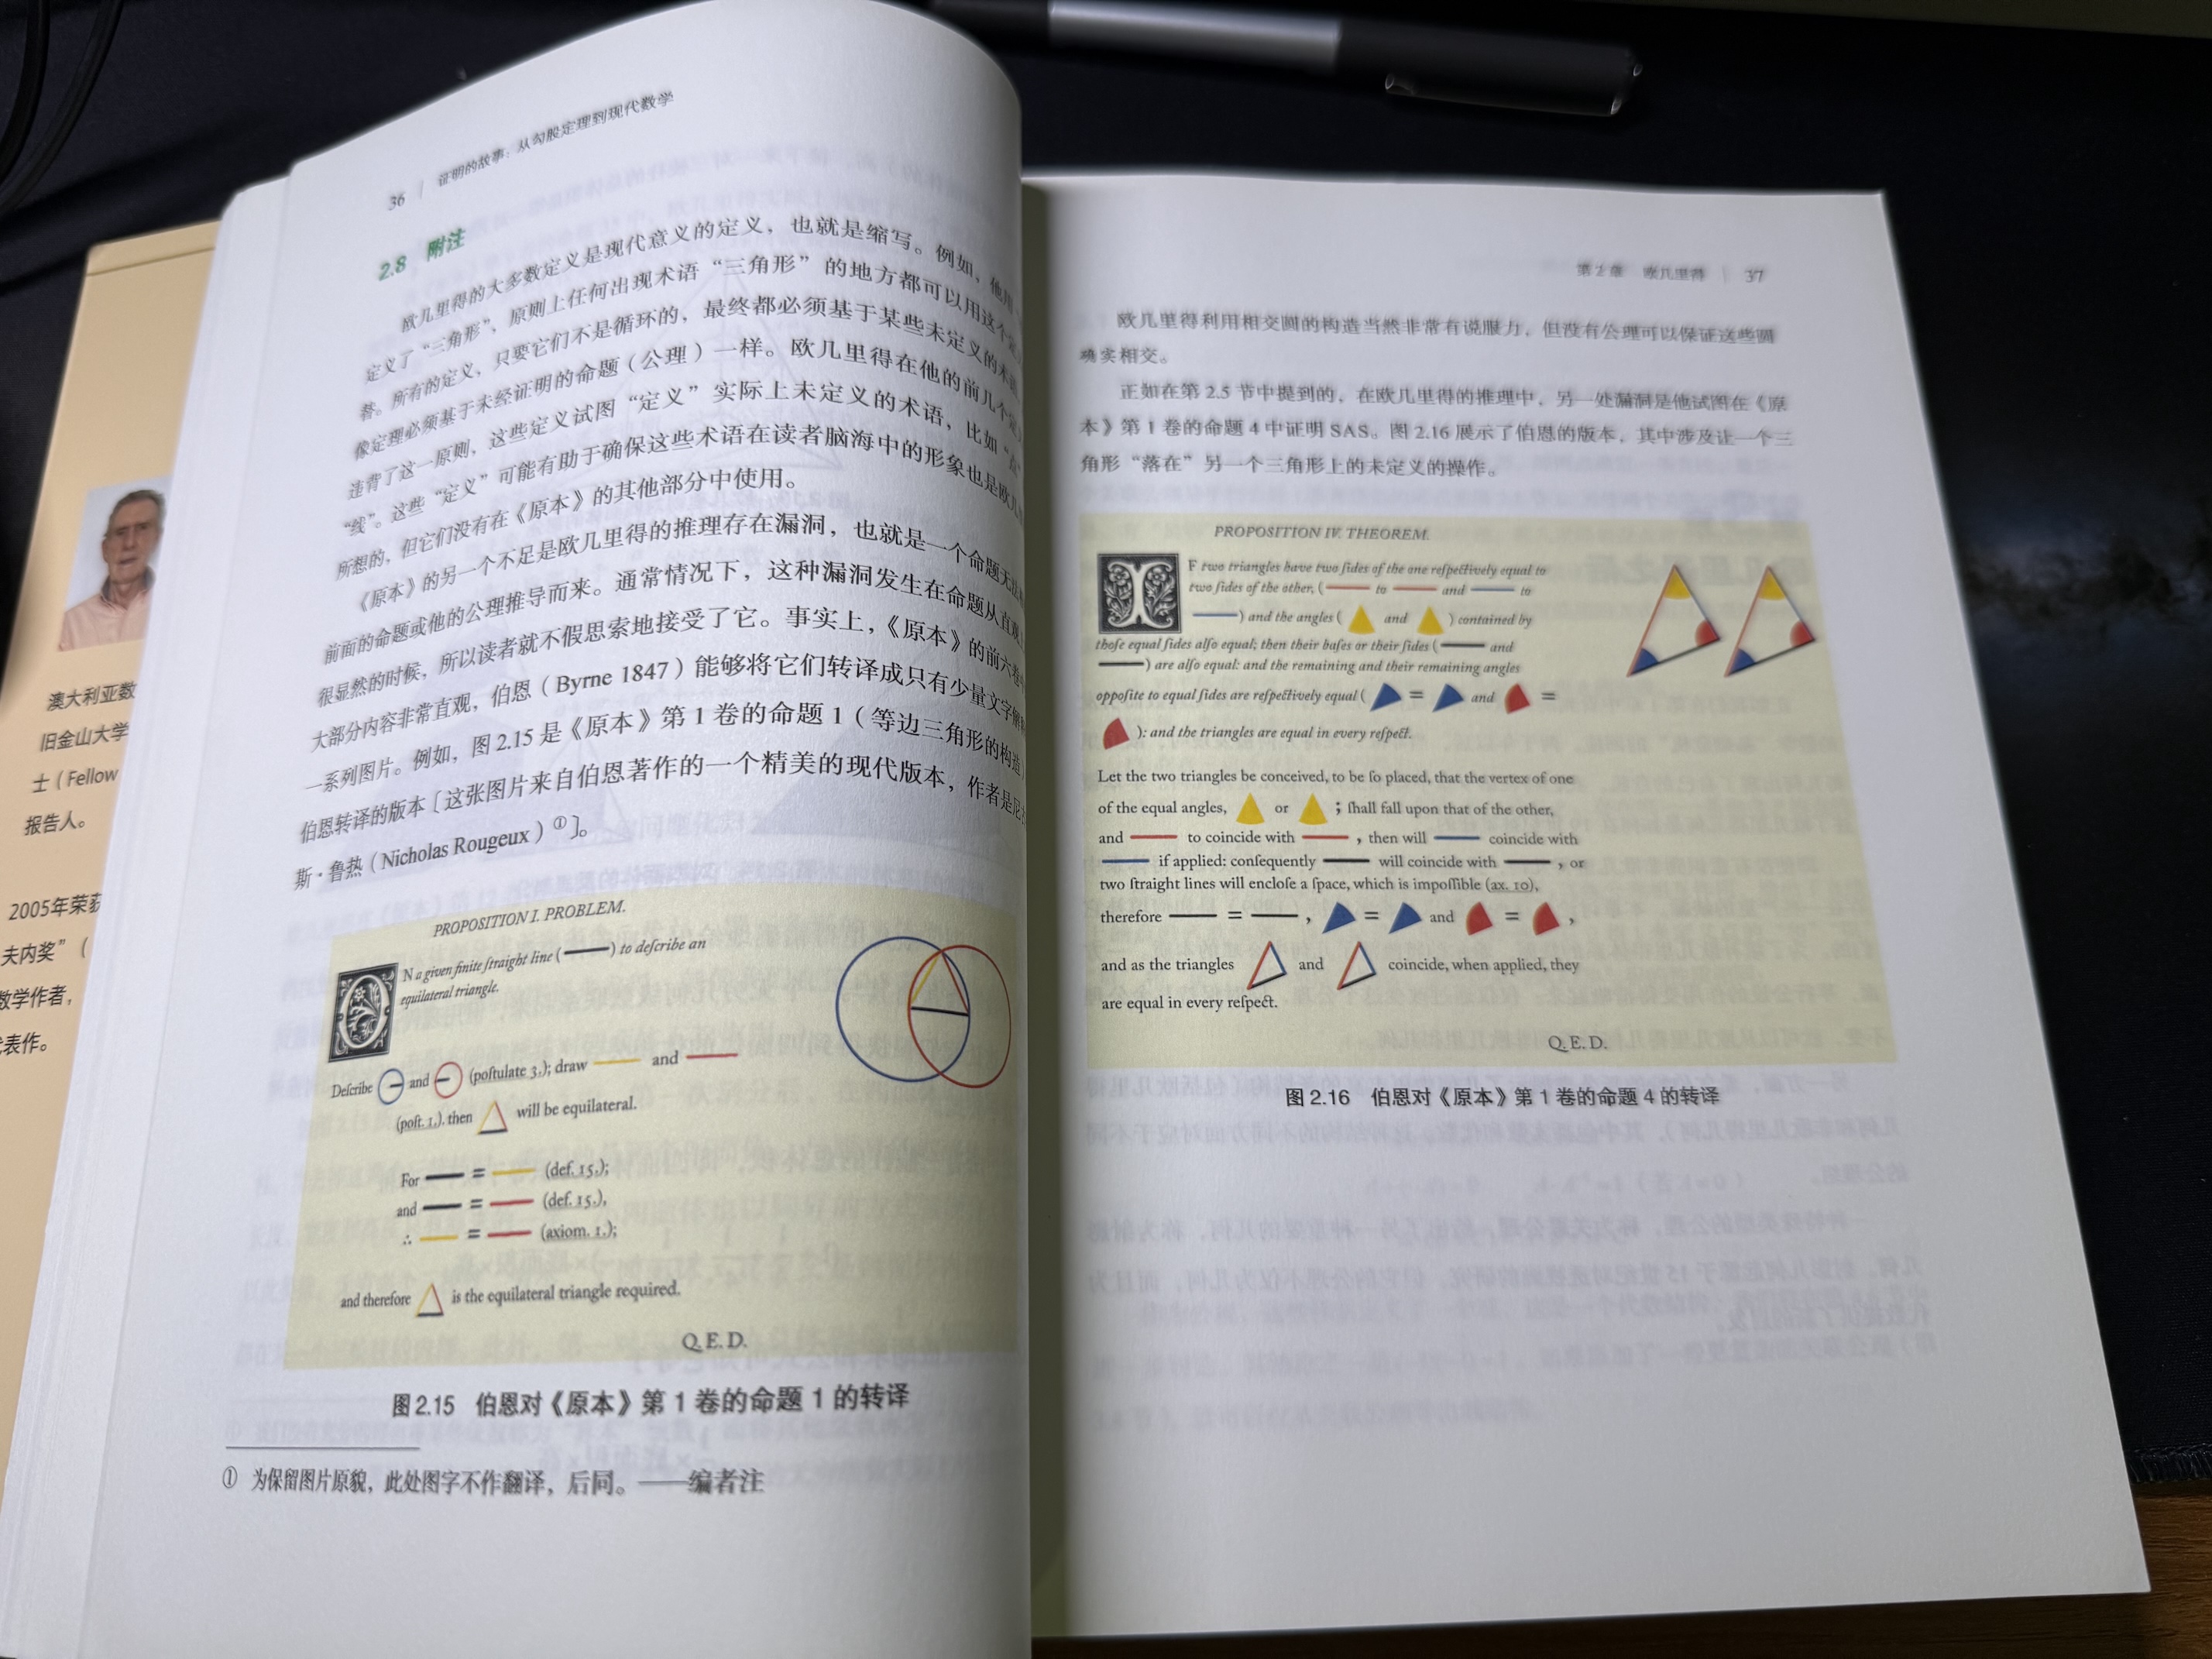 澳大利亚数
旧金山大学
士（Fellow
报告人。
2005年荣获
夫内奖”（
数学作者，
表作。
36 | 证明的故事：从勾股定理到现代数学
2.8 附注
欧几里得的大多数定义是现代意义的定义，也就是缩写。例如，他用
定义了“三角形”，原则上任何出现术语“三角形”的地方都可以用这个
替。所有的定义，只要它们不是循环的，最终都必须基于某些未定义的术语
像定理必须基于未经证明的命题（公理）一样。欧几里得在他的前几个定
违背了这一原则，这些定义试图“定义”实际上未定义的术语，比如“点”
“线”。这些“定义”可能有助于确保这些术语在读者脑海中的形象也是欧几
所想的，但它们没有在《原本》的其他部分中使用。
《原本》的另一个不足是欧几里得的推理存在漏洞，也就是一个命题无法
前面的命题或他的公理推导而来。通常情况下，这种漏洞发生在命题从直观
很显然的时候，所以读者就不假思索地接受了它。事实上，《原本》的前六卷
大部分内容非常直观，伯恩（Byrne 1847）能够将它们转译成只有少量文字解
一系列图片。例如，图 2.15 是《原本》第 1 卷的命题 1（等边三角形的构造）
伯恩转译的版本［这张图片来自伯恩著作的一个精美的现代版本，作者是尼
斯·鲁热（Nicholas Rougeux）①］。
PROPOSITION I. PROBLEM.
ON a given finite ſtraight line ( ) to deſcribe an
equilateral triangle.
Deſcribe and (poſtulate 3.); draw and
(poſt. 1.). then will be equilateral.
For = (def. 15.);
and = (def. 15.),
∴ = (axiom. 1.);
and therefore is the equilateral triangle required.
Q.E.D.
图 2.15 伯恩对《原本》第 1 卷的命题 1 的转译
① 为保留图片原貌，此处图字不作翻译，后同。——编者注
第 2 章 欧几里得 | 37
欧几里得利用相交圆的构造当然非常有说服力，但没有公理可以保证这些圆
确实相交。
正如在第 2.5 节中提到的，在欧几里得的推理中，另一处漏洞是他试图在《原
本》第 1 卷的命题 4 中证明 SAS。图 2.16 展示了伯恩的版本，其中涉及让一个三
角形“落在”另一个三角形上的未定义的操作。
PROPOSITION IV. THEOREM.
IF two triangles have two ſides of the one reſpectively equal to
two ſides of the other, ( to and to
) and the angles ( and ) contained by
thoſe equal ſides alſo equal; then their baſes or their ſides ( and
) are alſo equal: and the remaining and their remaining angles
oppoſite to equal ſides are reſpectively equal ( = and =
): and the triangles are equal in every reſpect.
Let the two triangles be conceived, to be ſo placed, that the vertex of one
of the equal angles, or ; ſhall fall upon that of the other,
and to coincide with , then will coincide with
if applied: conſequently will coincide with , or
two ſtraight lines will encloſe a ſpace, which is impoſſible (ax. 10),
therefore = , = and = ,
and as the triangles and coincide, when applied, they
are equal in every reſpect.
Q.E.D.
图 2.16 伯恩对《原本》第 1 卷的命题 4 的转译